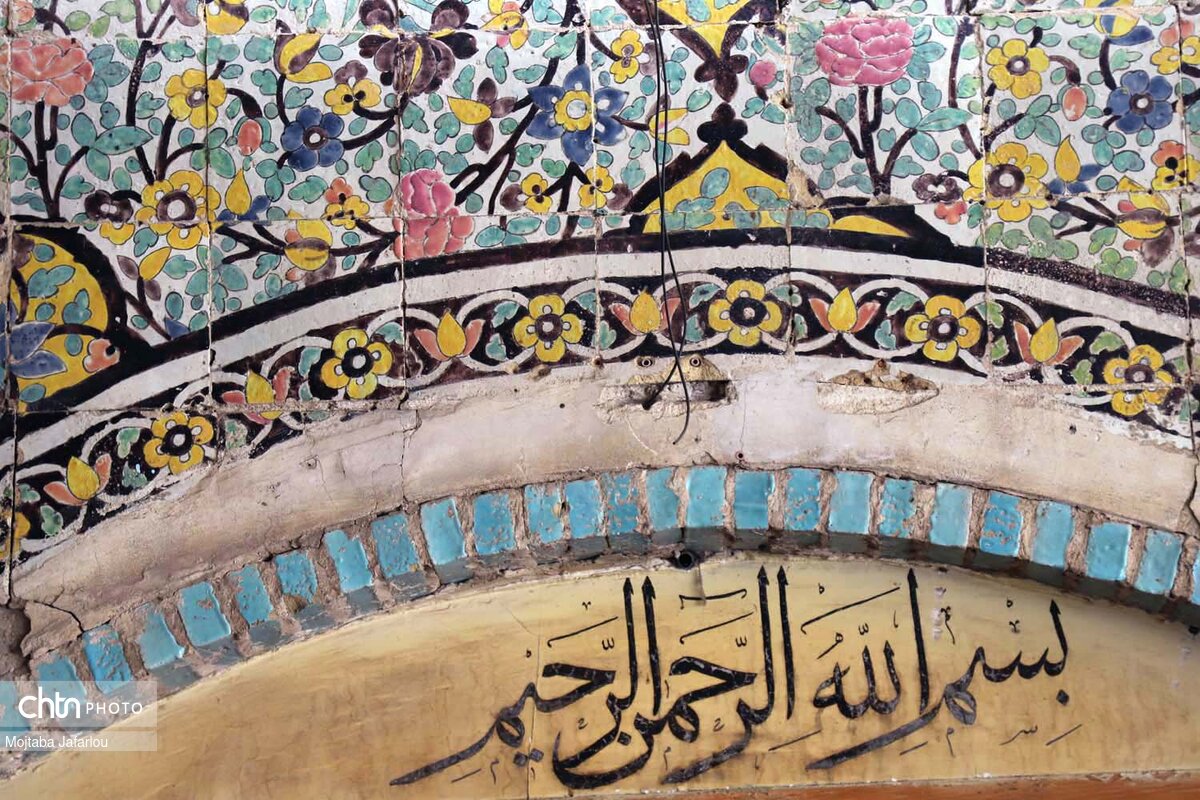 بسم الله الرحمن الرحيم
chtn PHOTO
Mojtaba Jafariou